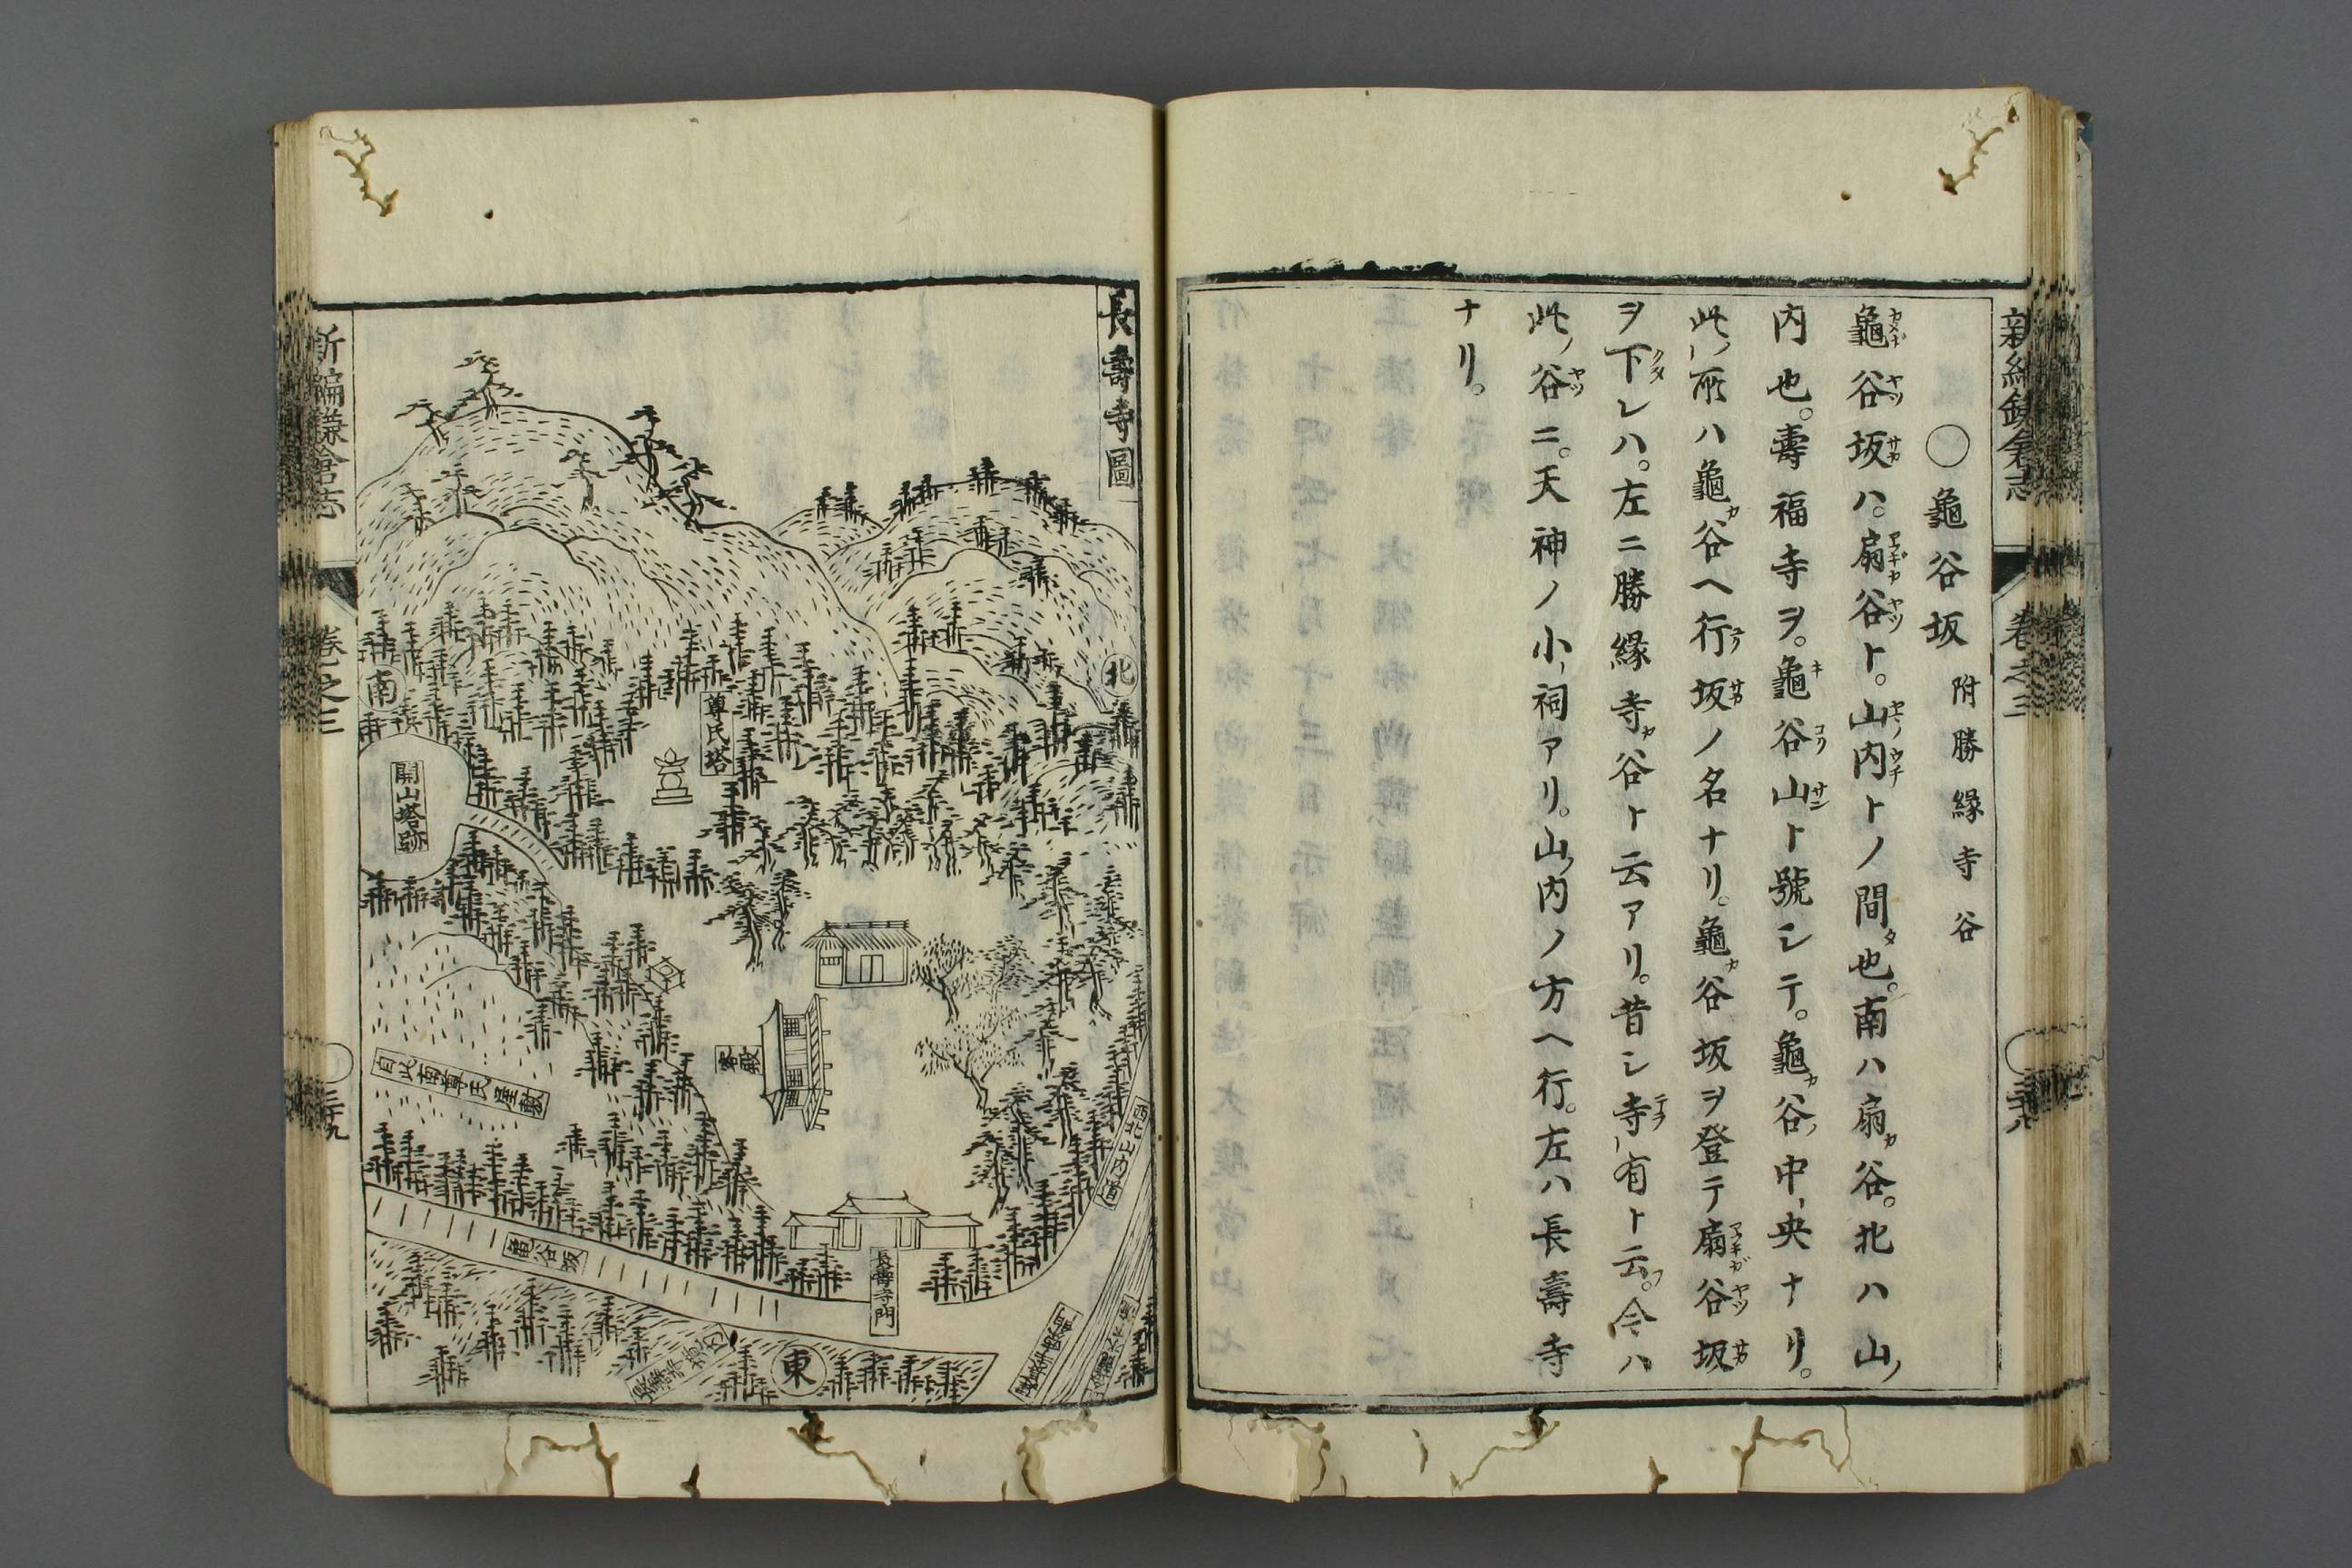 ○龜谷坂 附勝縁寺谷
龜谷坂ハ。扇谷ト。山内トノ間也。南ハ扇谷。北ハ山ノ
内也。壽福寺ヲ。龜谷山ト號シテ。龜谷ノ中央ナリ。
此ノ所ハ龜谷ヘ行坂ノ名ナリ。龜谷坂ヲ登テ扇谷坂
ヲ下レハ。左ニ勝縁寺谷ト云アリ。昔シ寺有ト云フ。今ハ
此ノ谷ニ。天神ノ小祠アリ。山ノ内ノ方ヘ行。左ハ長壽寺
ナリ。
卷之三
長壽寺圖
北
尊氏塔
南
開山塔跡
客殿
自此南尊氏屋敷
西北山内道
龜谷坂
長壽寺門
東
新編鎌倉志
卷之三
三十九